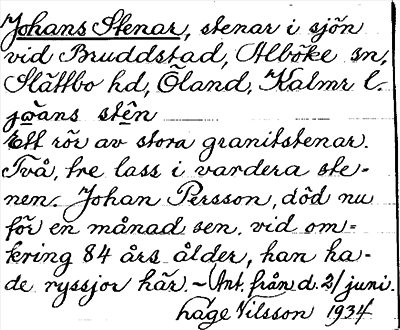 Johans Stenar, stenar i sjön
vid Bruddstad, Alböke sn,
Slättbo hd, Öland, Kalmr l.
jωans stên
Ett rör av stora granitstenar.
Två, tre lass i vardera ste-
nen. Johan Persson, död nu
för en månad sen vid om-
kring 84 års ålder, han ha-
de ryssjor här. – Ant. från d. 2/juni.
håge Nilsson 1934